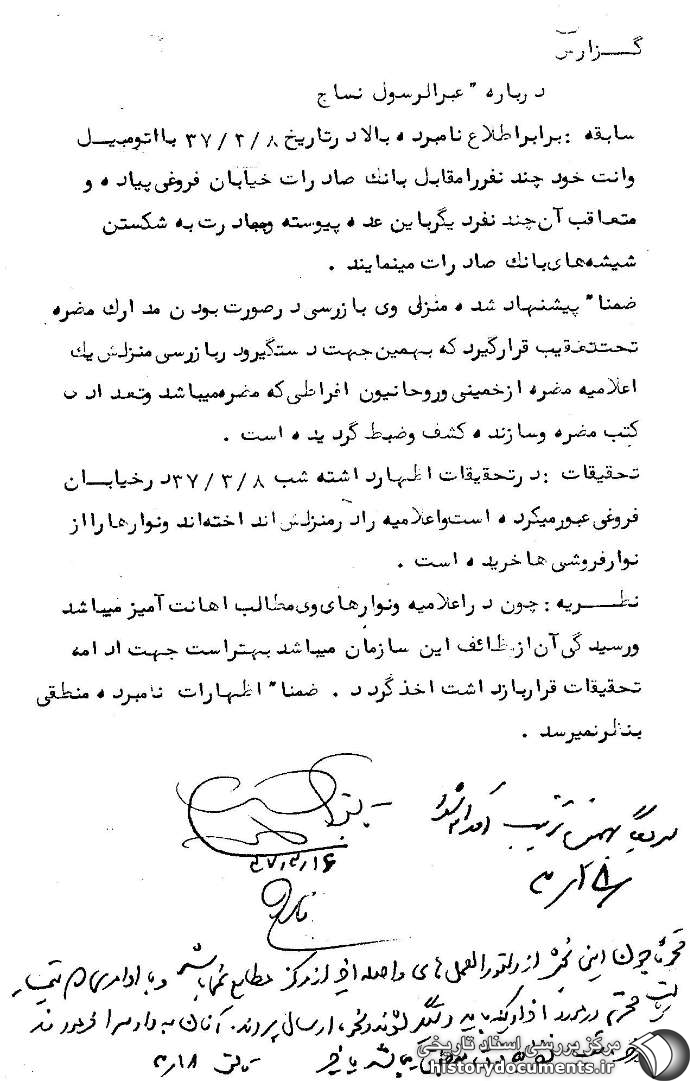 گزارش
درباره " عبدالرسول نساج
سابقه : برابر اطلاع نامبرده بالا در تاریخ ۳۷/۳/۸ با اتومبیل
وانت خود چند نفر را مقابل بانك صادرات خیابان فروغی پیاده و
متعاقب آن چند نفر دیگر باین عده پیوسته ومبادرت به شکستن
شیشه های بانك صادرات مینمایند .
ضمنا" پیشنهاد شده منزل وی بازرسی در صورت بودن مدارك مضره
تحت تعقیب قرار گیرد که بهمین جهت دستگیر ودر بازرسی منزلش یك
اعلامیه مضره از خمینی و روحانیون افراطی که مضره میباشد وتعدادی
کتب مضره وسازنده کشف وضبط گردیده است .
تحقیقات : در تحقیقات اظهار داشته شب ۳۷/۳/۸ در خیابان
فروغی عبور میکرده است واعلامیه را در منزلش انداخته اند ونوارها را از
نوار فروشی ها خریده است .
نظریه : چون در اعلامیه ونوارهای وی مطالب اهانت آمیز میباشد
ورسیدگی آن از وظائف این سازمان میباشد بهتر است جهت ادامه
تحقیقات قرار بازداشت اخذ گردد . ضمنا" اظهارات نامبرده منطقی
بنظر نمیرسد .
بهمین ترتیب اقدام شود
۳۷/۳/۱۶
۳/۱۸
چون این از دستورالعمل های واصله از مرکز مطابع نمیباشد و با
محترم در مورد افرادیکه باید دستگیر شوند ارسال
۳/۱۸
مرکز بررسی اسناد تاریخی
historydocuments.ir